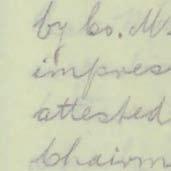 by Co. M.
impres
attested
Chairm